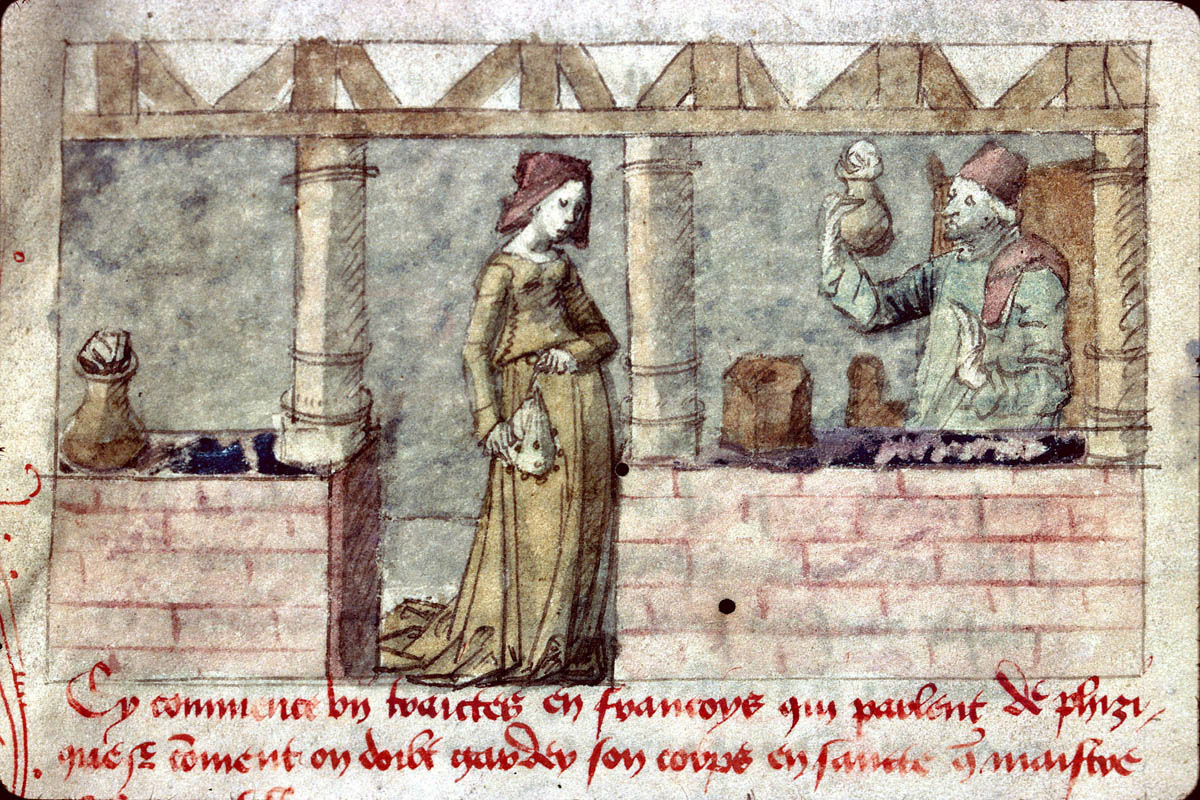 Cy commence vn traictes en francoys qui parlent de phizi-
que & cōment on doibt garder son corps en sancte q̄ maistre